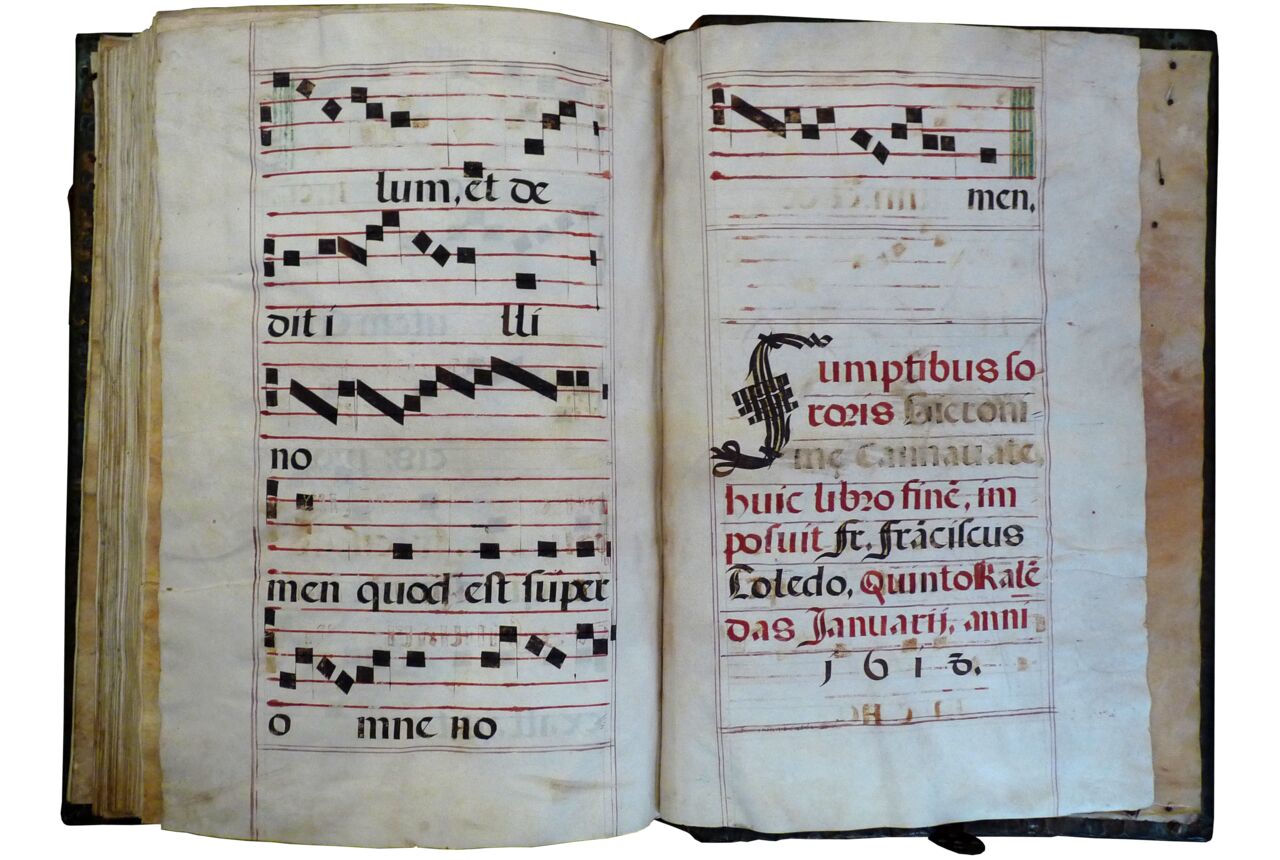 lum, et de
dit i lli
no
men quod est super
o mne no
men.
Sumptibus so
roris
huic libro finē, im
posuit fr. frāciscus
Toledo, Quinto Kalē
das Januarij, anni
1 6 1